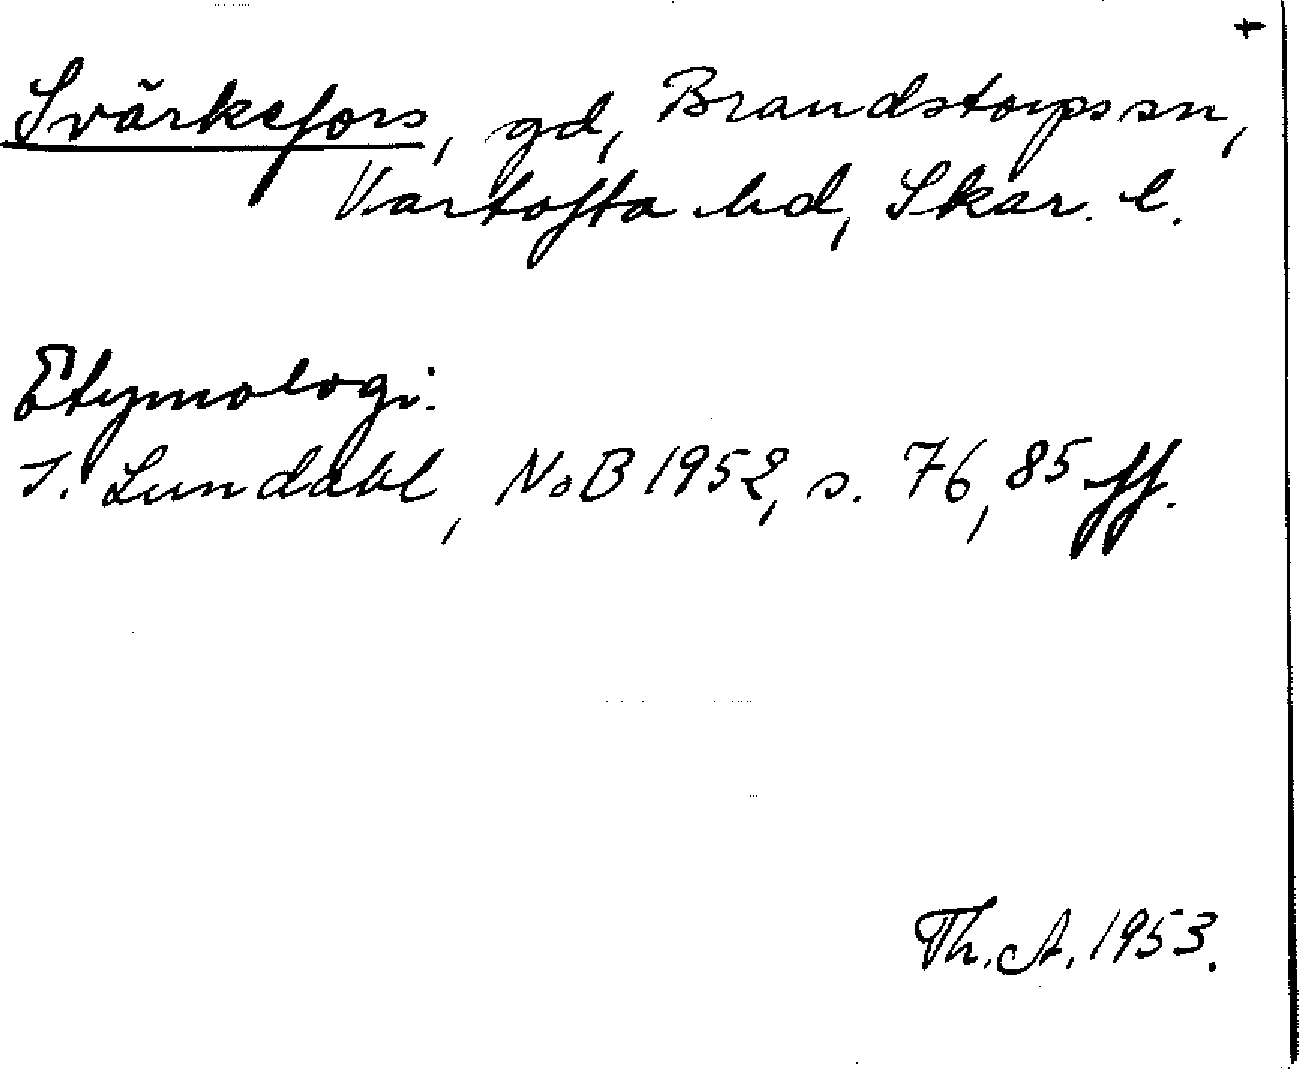 +
Svärkefors, gd, Brandstorps sn,
Vartofta hd, Skar. l.
Etymologi.
I. Lundahl, NoB 1952, s. 76, 85 ff.
Th. A. 1953.